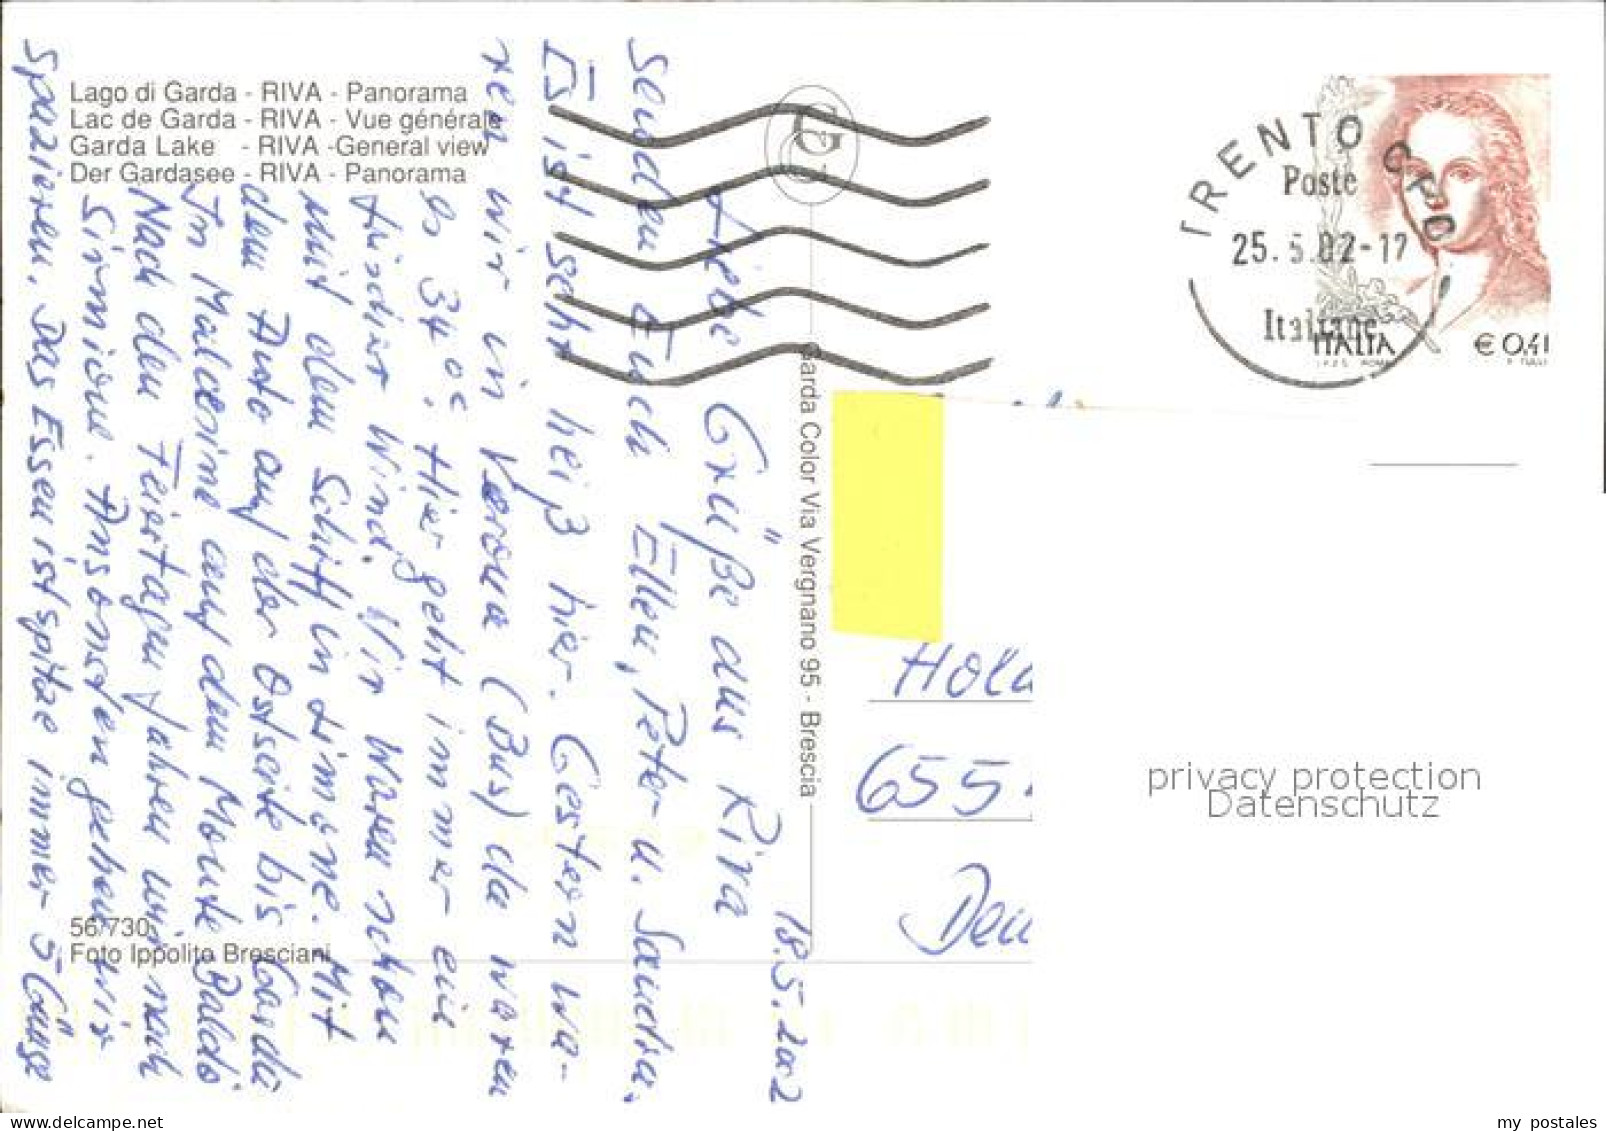 Lago di Garda - RIVA - Panorama
Lac de Garda - RIVA - Vue générale
Garda Lake - RIVA -General view
Der Gardasee - RIVA - Panorama
18.5.2002
Liebe Grüße aus Riva
senden Euch Ellen, Peter u. Sandra.
Es ist sehr heiß hier. Gestern wa-
ren wir in Verona (Bus) da waren
es 34°C. Hier geht immer ein
frischer Wind. Wir waren schon
mit dem Schiff in Limone. Mit
dem Auto auf der Ostseite bis Garda
In Malcesine auf dem Monte Baldo
Nach den Feiertagen fahren wir nach
Sirmione. Ansonsten gehen wir
Spazieren. Das Essen ist spitze immer 5 Gänge
56/730
Foto Ippolito Bresciani
Garda Color Via Vergnano 95 - Brescia
G
C
TRENTO CPO
Poste
25.5.02-17
Italiane
ITALIA
€ 0,41
I.P.Z.S. ROMA
F. TULLI
655
privacy protection
Datenschutz
my postales